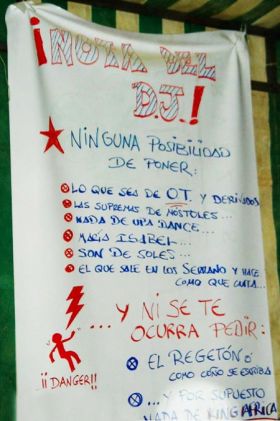 ¡NOTA DEL
D.J.!
NINGUNA POSIBILIDAD
DE PONER:
LO QUE SEA DE OT Y DERIVADOS
LAS SUPREMAS DE MÓSTOLES...
NADA DE UPA DANCE...
MARÍA ISABEL...
SON DE SOLES...
EL QUE SALE EN LOS SERRANO Y HACE
COMO QUE CANTA...
...Y NI SE TE
OCURRA PEDIR:
EL REGETÓN Ó
COMO COÑO SE ESCRIBA
¡¡DANGER!!
...Y POR SUPUESTO
NADA DE KING AFRICA